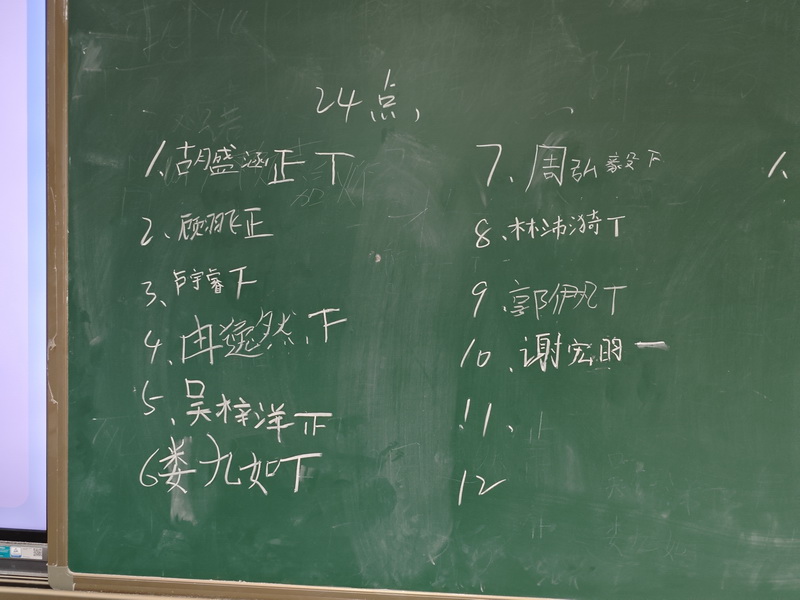 24点,
1、胡盛涵正丅
2、顾羽飞正
3、卢宇睿下
4、冉逸然、下
5、吴梓洋正
6娄九如丅
7、周弘毅下
8、林沛漪丅
9、郭伊凡丅
10、谢宏明一
11、
12
1、